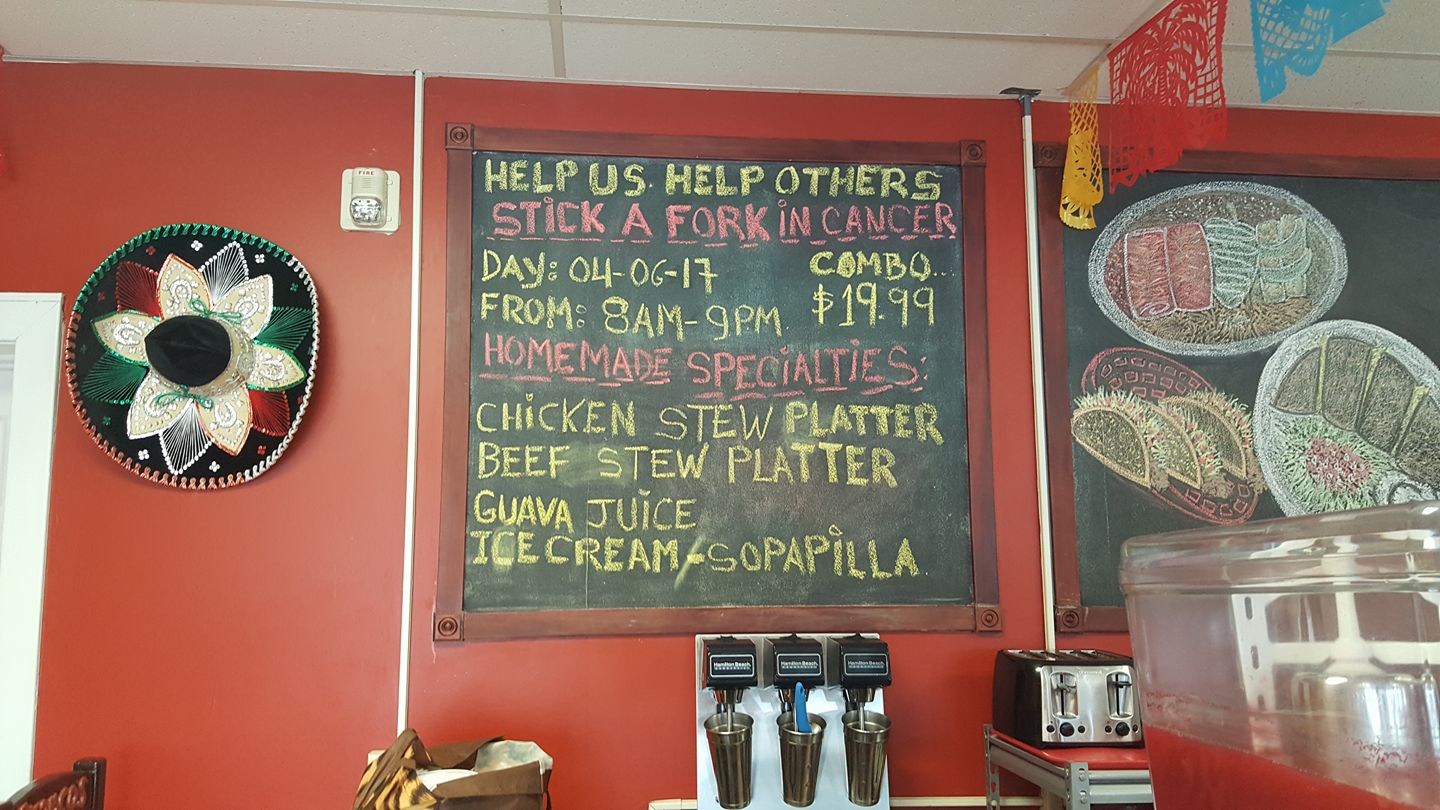 FIRE
HELP US HELP OTHERS
STICK A FORK IN CANCER
DAY: 04-06-17
FROM: 8AM-9PM
COMBO..
$19.99
HOMEMADE SPECIALTIES:
CHICKEN STEW PLATTER
BEEF STEW PLATTER
GUAVA JUICE
ICE CREAM-SOPAPILLA
Hamilton Beach
Hamilton Beach
Hamilton Beach